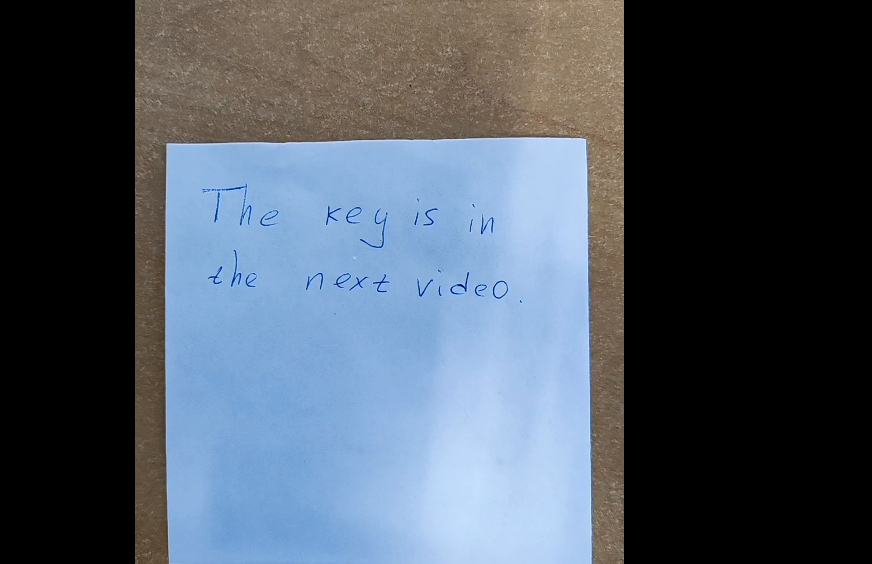 The key is in
the next video.